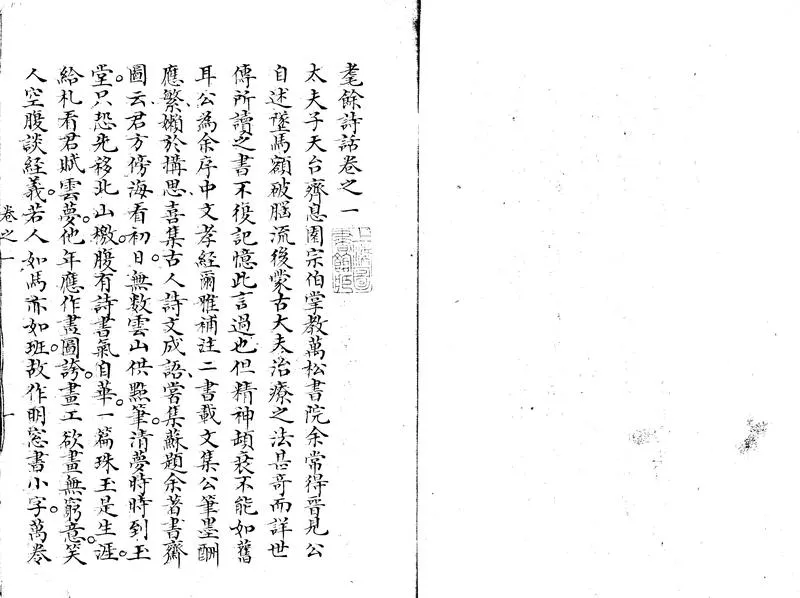 耄餘詩話卷之一
太夫子天台齊息園宗伯掌教萬松書院余常得晉見公
自述墜馬額破腦流後蒙古大夫治療之法甚奇而詳世
傳所讀之書不復記憶此言過也但精神頓衰不能如舊
耳公為余序中文孝經爾雅補注二書載文集公筆墨酬
應繁嬾於搆思喜集古人詩文成語嘗集蘇題余著書齋
圖云君方傍海看初日無數雲山供點筆清夢時時到玉
堂只恐先移北山檄腹有詩書氣自華一篇珠玉是生涯
給札看君賦雲夢他年應作畫圖誇畫工欲畫無窮意笑
人空腹談經義若人如馬亦如班故作明窓書小字萬卷
卷之一
一